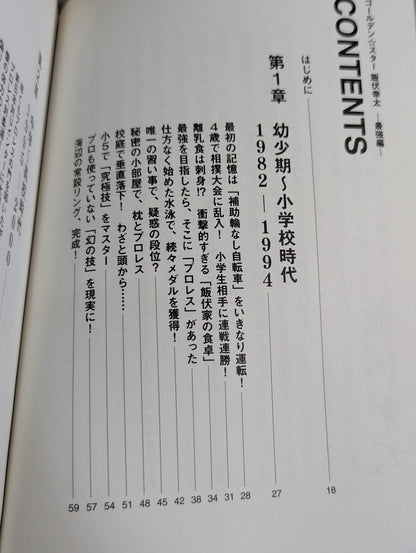 ゴールデン☆スター 飯伏幸太 ―最強編―
CONTENTS
はじめに 18
第1章 幼少期〜小学校時代
1982―1994 27
最初の記憶は「補助輪なし自転車」をいきなり運転! 28
4歳で相撲大会に乱入! 小学生相手に連戦連勝! 31
離乳食は刺身!? 衝撃的すぎる「飯伏家の食卓」 34
最強を目指したら、そこに「プロレス」があった 38
仕方なく始めた水泳で、続々メダルを獲得! 42
唯一の習い事で、疑惑の段位? 45
秘密の小部屋で、枕とプロレス 48
校庭で垂直落下! わざと頭から…… 51
小5で「究極技」をマスター 54
プロも使っていない「幻の技」を現実に! 57
海辺の常設リング、完成! 59